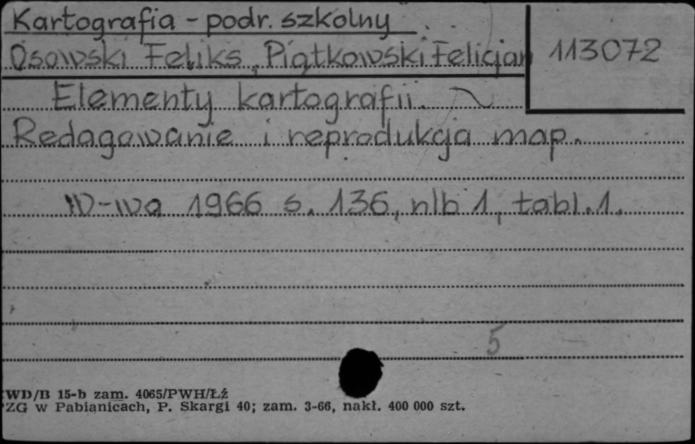 Kartografia - podr. szkolny
Osowski Feliks, Piątkowski Felicjan
113072
Elementy kartografii.
Redagowanie i reprodukcja map.
W-wa 1966 s. 136, nlb 1, tabl. 1.
5
WD/B 15-b zam. 4065/PWH/Łź
ZG w Pabianicach, P. Skargi 40; zam. 3-66, nakł. 400 000 szt.